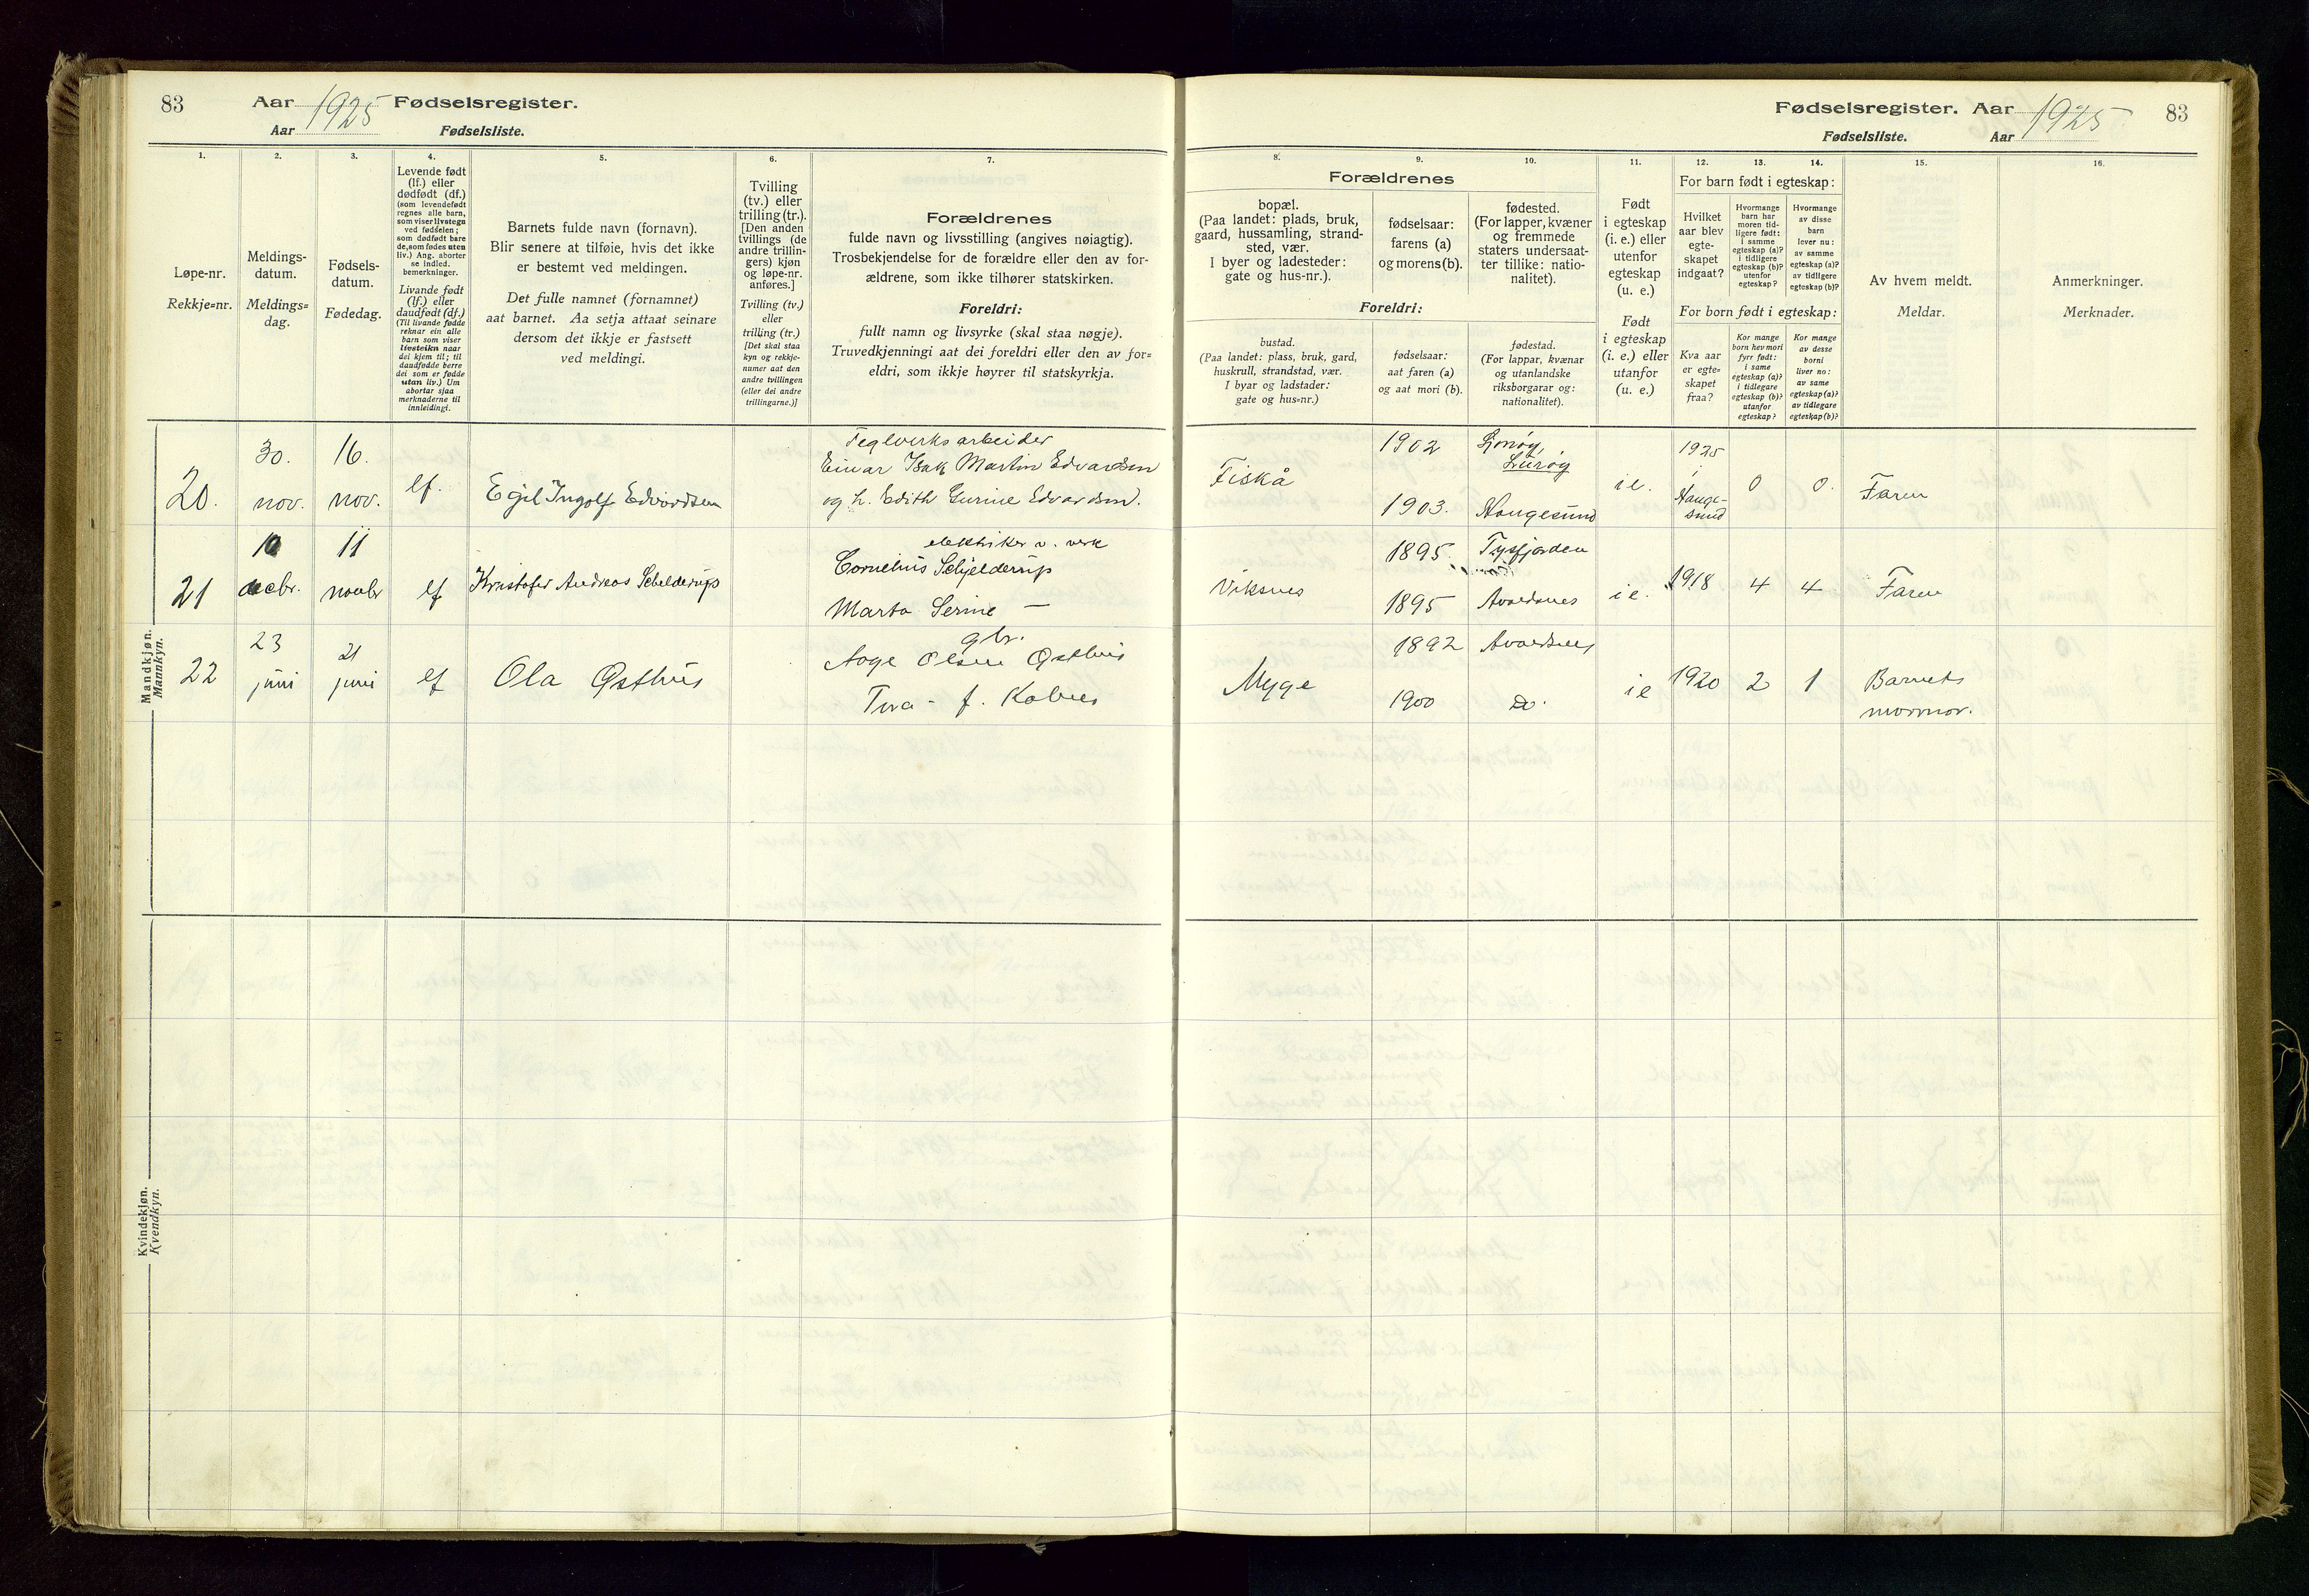 83 Aar 1925 Fødselsregister.
Aar Fødselsliste.
Fødselsregister. Aar 1925 83
Fødselsliste. Aar
1. 2. 3. 4. 5. 6. 7.
Løpe-nr.
Rekkje=nr.
Meldings-
datum.
Meldings=
dag.
Fødsels-
datum.
Fødedag.
Levende født
(lf.) eller
dødfødt (df.)
(som levendefødt
regnes alle barn,
som viser livstegn
ved fødselen;
som dødfødt bare
de, som fødes uten
liv.) Ang. aborter
se indled.
bemerkninger.
Livande født
(lf.) eller
daudfødt (df.)
(Til livande fødde
reknar ein alle
barn som viser
livsteikn naar
dei kjem til; til
daudfødde berre
dei som er fødde
utan liv.) Um
abortar sjaa
merknaderne til
innleidingi.
Barnets fulde navn (fornavn).
Blir senere at tilføie, hvis det ikke
er bestemt ved meldingen.
Det fulle namnet (fornamnet)
aat barnet. Aa setja attaat seinare
dersom det ikkje er fastsett
ved meldingi.
Tvilling
(tv.) eller
trilling (tr.).
[Den anden
tvillings (de
andre trillin-
gers) kjøn
og løpe-nr.
anføres.]
Tvilling (tv.)
eller
trilling (tr.)
[Det skal staa
kyn og rekkje-
numer aat den
andre tvillingen
(eller dei andre
trillingarne.)]
Forældrenes
fulde navn og livsstilling (angives nøiagtig).
Trosbekjendelse for de forældre eller den av for-
ældrene, som ikke tilhører statskirken.
Foreldri:
fullt namn og livsyrke (skal staa nøgje).
Truvedkjenningi aat dei foreldri eller den av for=
eldri, som ikkje høyrer til statskyrkja.
8. 9. 10. 11. 12. 13. 14. 15. 16.
Forældrenes
bopæl.
(Paa landet: plads, bruk,
gaard, hussamling, strand-
sted, vær.
I byer og ladesteder:
gate og hus-nr.).
fødselsaar:
farens (a)
og morens (b).
fødested.
(For lapper, kvæner
og fremmede
staters undersaat-
ter tillike: natio-
nalitet).
Foreldri:
bustad.
(Paa landet: plass, bruk, gard,
huskrull, strandstad, vær.
I byar og ladstader:
gate og hus=nr.)
fødselsaar:
aat faren (a)
og aat mori (b).
fødestad.
(For lappar, kvænar
og utanlandske
riksborgarar og:
nationalitet).
Født
i egteskap
(i. e.) eller
utenfor
egteskap
(u. e.)
Født
i egteskap
(i. e.) eller
utanfor
(u. e.)
For barn født i egteskap:
Hvilket
aar blev
egte-
skapet
indgaat?
Hvormange
barn har
moren tid-
ligere født:
i samme
egteskap (a)?
i tidligere
egteskap (b)?
utenfor
egteskap?
Hvormange
av disse
barn
lever nu:
av samme
egteskap (a)?
av tidligere
egteskap (b)?
For born født i egteskap:
Kva aar
er egte=
skapet
fraa?
Kor mange
born hev mori
fyrr født:
i same
egteskap (a)?
i tidlegare
egteskap (b)?
utanfor
egteskap?
Kor mange
av desse
borni
liver no:
av same
egteskap (a)?
av tidlegare
egteskap (b)?
Av hvem meldt.
Meldar.
Anmerkninger.
Merknader.
Mandkjøn.
Mannkyn.
20. 30. nov. 16. nov. lf. Egil Ingolf Edvardsen
Teglverksarbeider
Einar Isak Martin Edvardsen
og h. Edith Gurine Edvardsen.
Fiskå 1902 Lurøy
1903. Haugesund
i e. 1925 i Hauge-
sund 0 0. Faren
21 10 decbr. 11 novbr lf Kristofer Andreas Schelderup
elektriker v. verk
Cornelius Schjelderup
Marta Serine —
Viksnes 1895. Tysfjorden
1895 Avaldsnes
i e. 1918 4 4 Faren
22 23 juni 21 juni lf Ola Østhus
gbr.
Aage Olsen Østhus
Tora - f. Kolnes
Myge 1892 Avaldsnes
1900 do.
i e 1920 2 1 Barnets
mormor.
Kvindekjøn.
Kvendkyn.